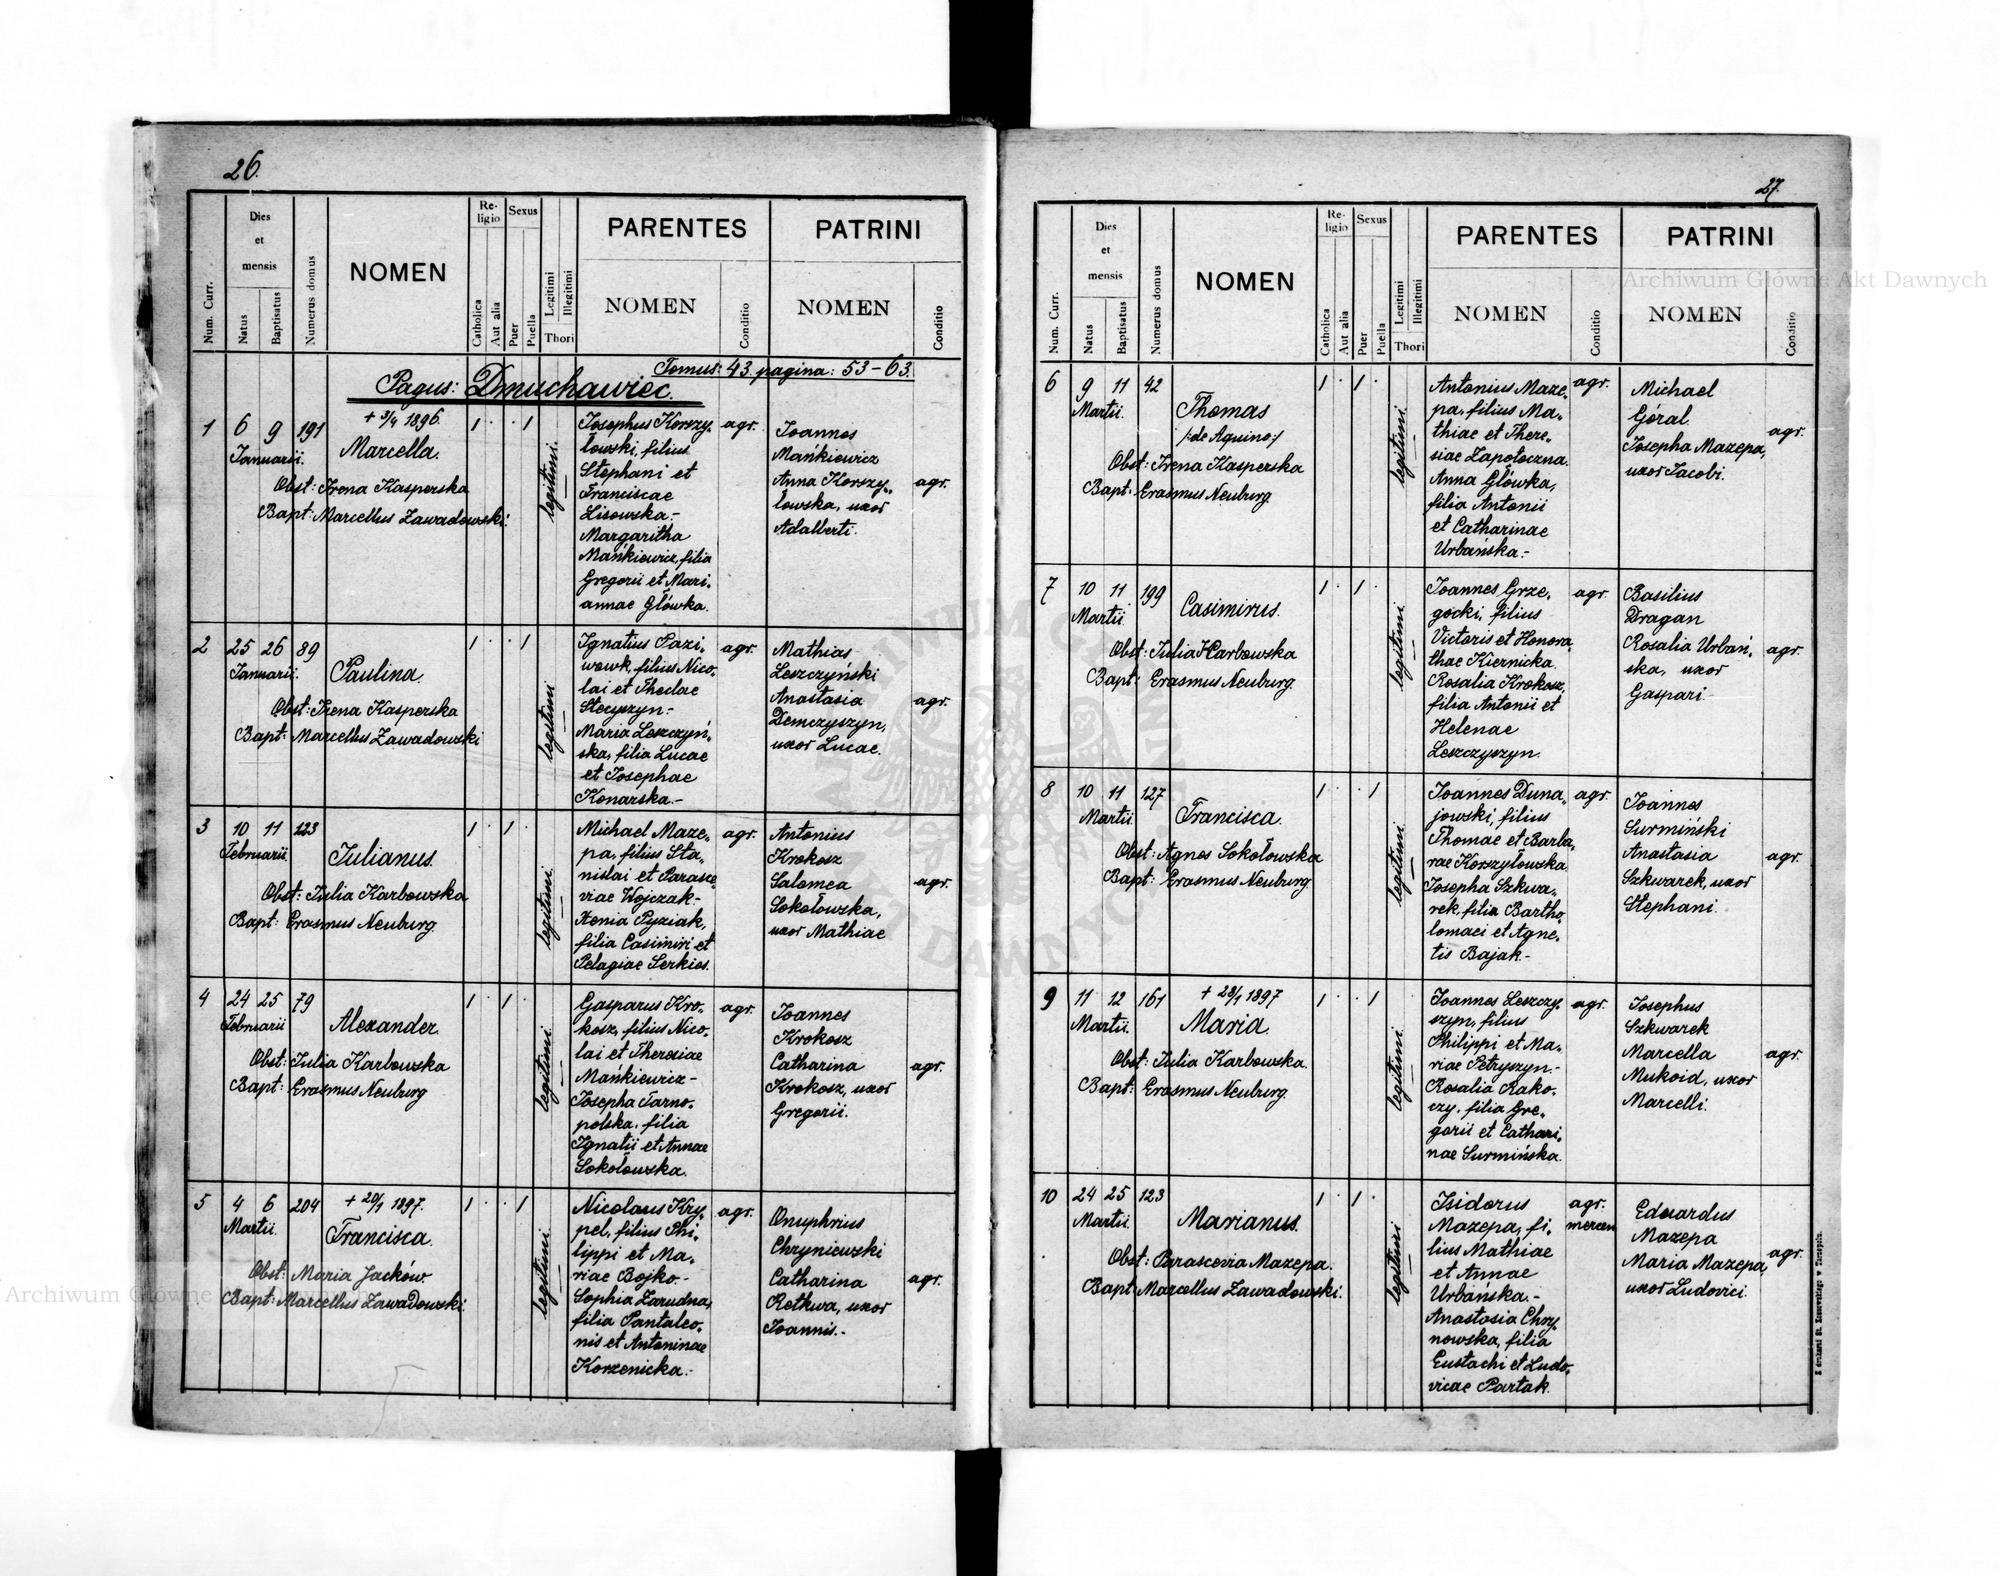 26.
Num. Curr.
Dies
et
mensis
Natus
Baptisatus
Numerus domus
NOMEN
Re-
ligio
Catholica
Aut alia
Sexus
Puer
Puella
Legitimi
Illegitimi
Thori
PARENTES
NOMEN
Conditio
PATRINI
NOMEN
Conditio
Tomus: 43. pagina: 53-63.
Pagus: Dmuchawiec.
1 6 9 191
Januarii.
+ 3/4 1896.
Marcella.
Obst: Irena Kasperska
Bapt: Marcellus Zawadowski.
legitimi.
Josephus Korszy„
łowski, filius
Stephani et
Franciscae
Lisowska.-
Margaritha
Mańkiewicz, filia
Gregorii et Mari„
annae Główka.
agr.
Joannes
Mańkiewicz
Anna Korszy„
łowska, uxor
Adalberti.
agr.
2 25 26 89
Januarii.
Paulina.
Obst: Irena Kasperska
Bapt: Marcellus Zawadowski
legitimi
Ignatius Pazi„
wowk, filius Nico„
lai et Theclae
Stecyszyn.-
Maria Leszczyń„
ska, filia Lucae
et Josephae
Konarska.-
agr.
Mathias
Leszczyński
Anastasia
Demczyszyn,
uxor Lucae.
agr.
3 10 11 123
Februarii.
Julianus.
Obst: Julia Karbowska
Bapt: Erasmus Neuburg
legitimi.
Michael Maze„
pa, filius Sta„
nislai et Parasce„
viae Wojczak-
Xenia Pyziak,
filia Casimiri et
Pelagiae Serkies.
agr.
Antonius
Krokosz
Salomea
Sokołowska,
uxor Mathiae
agr.
4 24 25 79
Februarii
Alexander.
Obst: Julia Karbowska
Bapt: Erasmus Neuburg
legitimi.
Gasparus Kro„
kosz, filius Nico„
lai et Theresiae
Mańkiewicz-
Josepha Tarno„
polska, filia
Ignatii et Annae
Sokołowska.
agr.
Joannes
Krokosz
Catharina
Krokosz, uxor
Gregorii.
agr.
5 4 6 204
Martii.
+ 20/1 1897.
Francisca.
Obst: Maria Jacków
Bapt: Marcellus Zawadowski.
legitimi.
Nicolaus Kry„
pel, filius Phi„
lippi et Ma„
riae Bojko.-
Sophia Zarudna,
filia Pantaleo„
nis et Antoninae
Korzenicka.-
agr.
Onuphrius
Chryniewski
Catharina
Retkwa, uxor
Joannis.-
agr.
27.
Num. Curr.
Dies
et
mensis
Natus
Baptisatus
Numerus domus
NOMEN
Re-
ligio
Catholica
Aut alia
Sexus
Puer
Puella
Legitimi
Illegitimi
Thori
PARENTES
NOMEN
Conditio
PATRINI
NOMEN
Conditio
6 9 11 42
Martii.
Thomas
/:de Aquino:/
Obst: Irena Kasperska
Bapt: Erasmus Neuburg.
legitimi.
Antonius Maze„
pa, filius Ma„
thiae et There„
siae Zapotoczna.
Anna Główka,
filia Antonii
et Catharinae
Urbańska.-
agr.
Michael
Góral.
Josepha Mazepa,
uxor Jacobi.
agr.
7 10 11 199
Martii.
Casimirus.
Obst: Julia Karbowska
Bapt: Erasmus Neuburg.
legitimi.
Joannes Grze„
gocki, filius
Victoris et Honora„
thae Kiernicka.
Rosalia Krokosz,
filia Antonii et
Helenae
Leszczyszyn.
agr.
Basilius
Dragan
Rosalia Urbań„
ska, uxor
Gaspari.
agr.
8 10 11 127
Martii.
Francisca.
Obst: Agnes Sokołowska
Bapt: Erasmus Neuburg.
legitimi.
Joannes Duna„
jowski, filius
Thomae et Barba„
rae Korszyłowska.
Josepha Szkwa„
rek, filia Bartho„
lomaei et Agne„
tis Bajak.-
agr.
Joannes
Surmiński
Anastasia
Szkwarek, uxor
Stephani.
agr.
9 11 12 161
Martii.
+ 28/1 1897
Maria.
Obst: Julia Karbowska.
Bapt: Erasmus Neuburg.
legitimi.
Joannes Leszczy„
szyn, filius
Philippi et Ma„
riae Petryszyn.-
Rosalia Rako„
czy, filia Gre„
gorii et Cathari„
nae Surmińska.
agr.
Josephus
Szkwarek
Marcella
Mukoid, uxor
Marcelli.
agr.
10 24 25 123
Martii.
Marianus.
Obst: Parascevia Mazepa.
Bapt: Marcellus Zawadowski.
legitimi
Isidorus
Mazepa, fi„
lius Mathiae
et Annae
Urbańska.-
Anastasia Chry„
nowska, filia
Eustachi et Ludo„
vicae Partak.
agr.
mercen
Eduardus
Mazepa
Maria Mazepa,
uxor Ludovici.
agr.
Archiwum Główne Akt Dawnych
Archiwum Główne